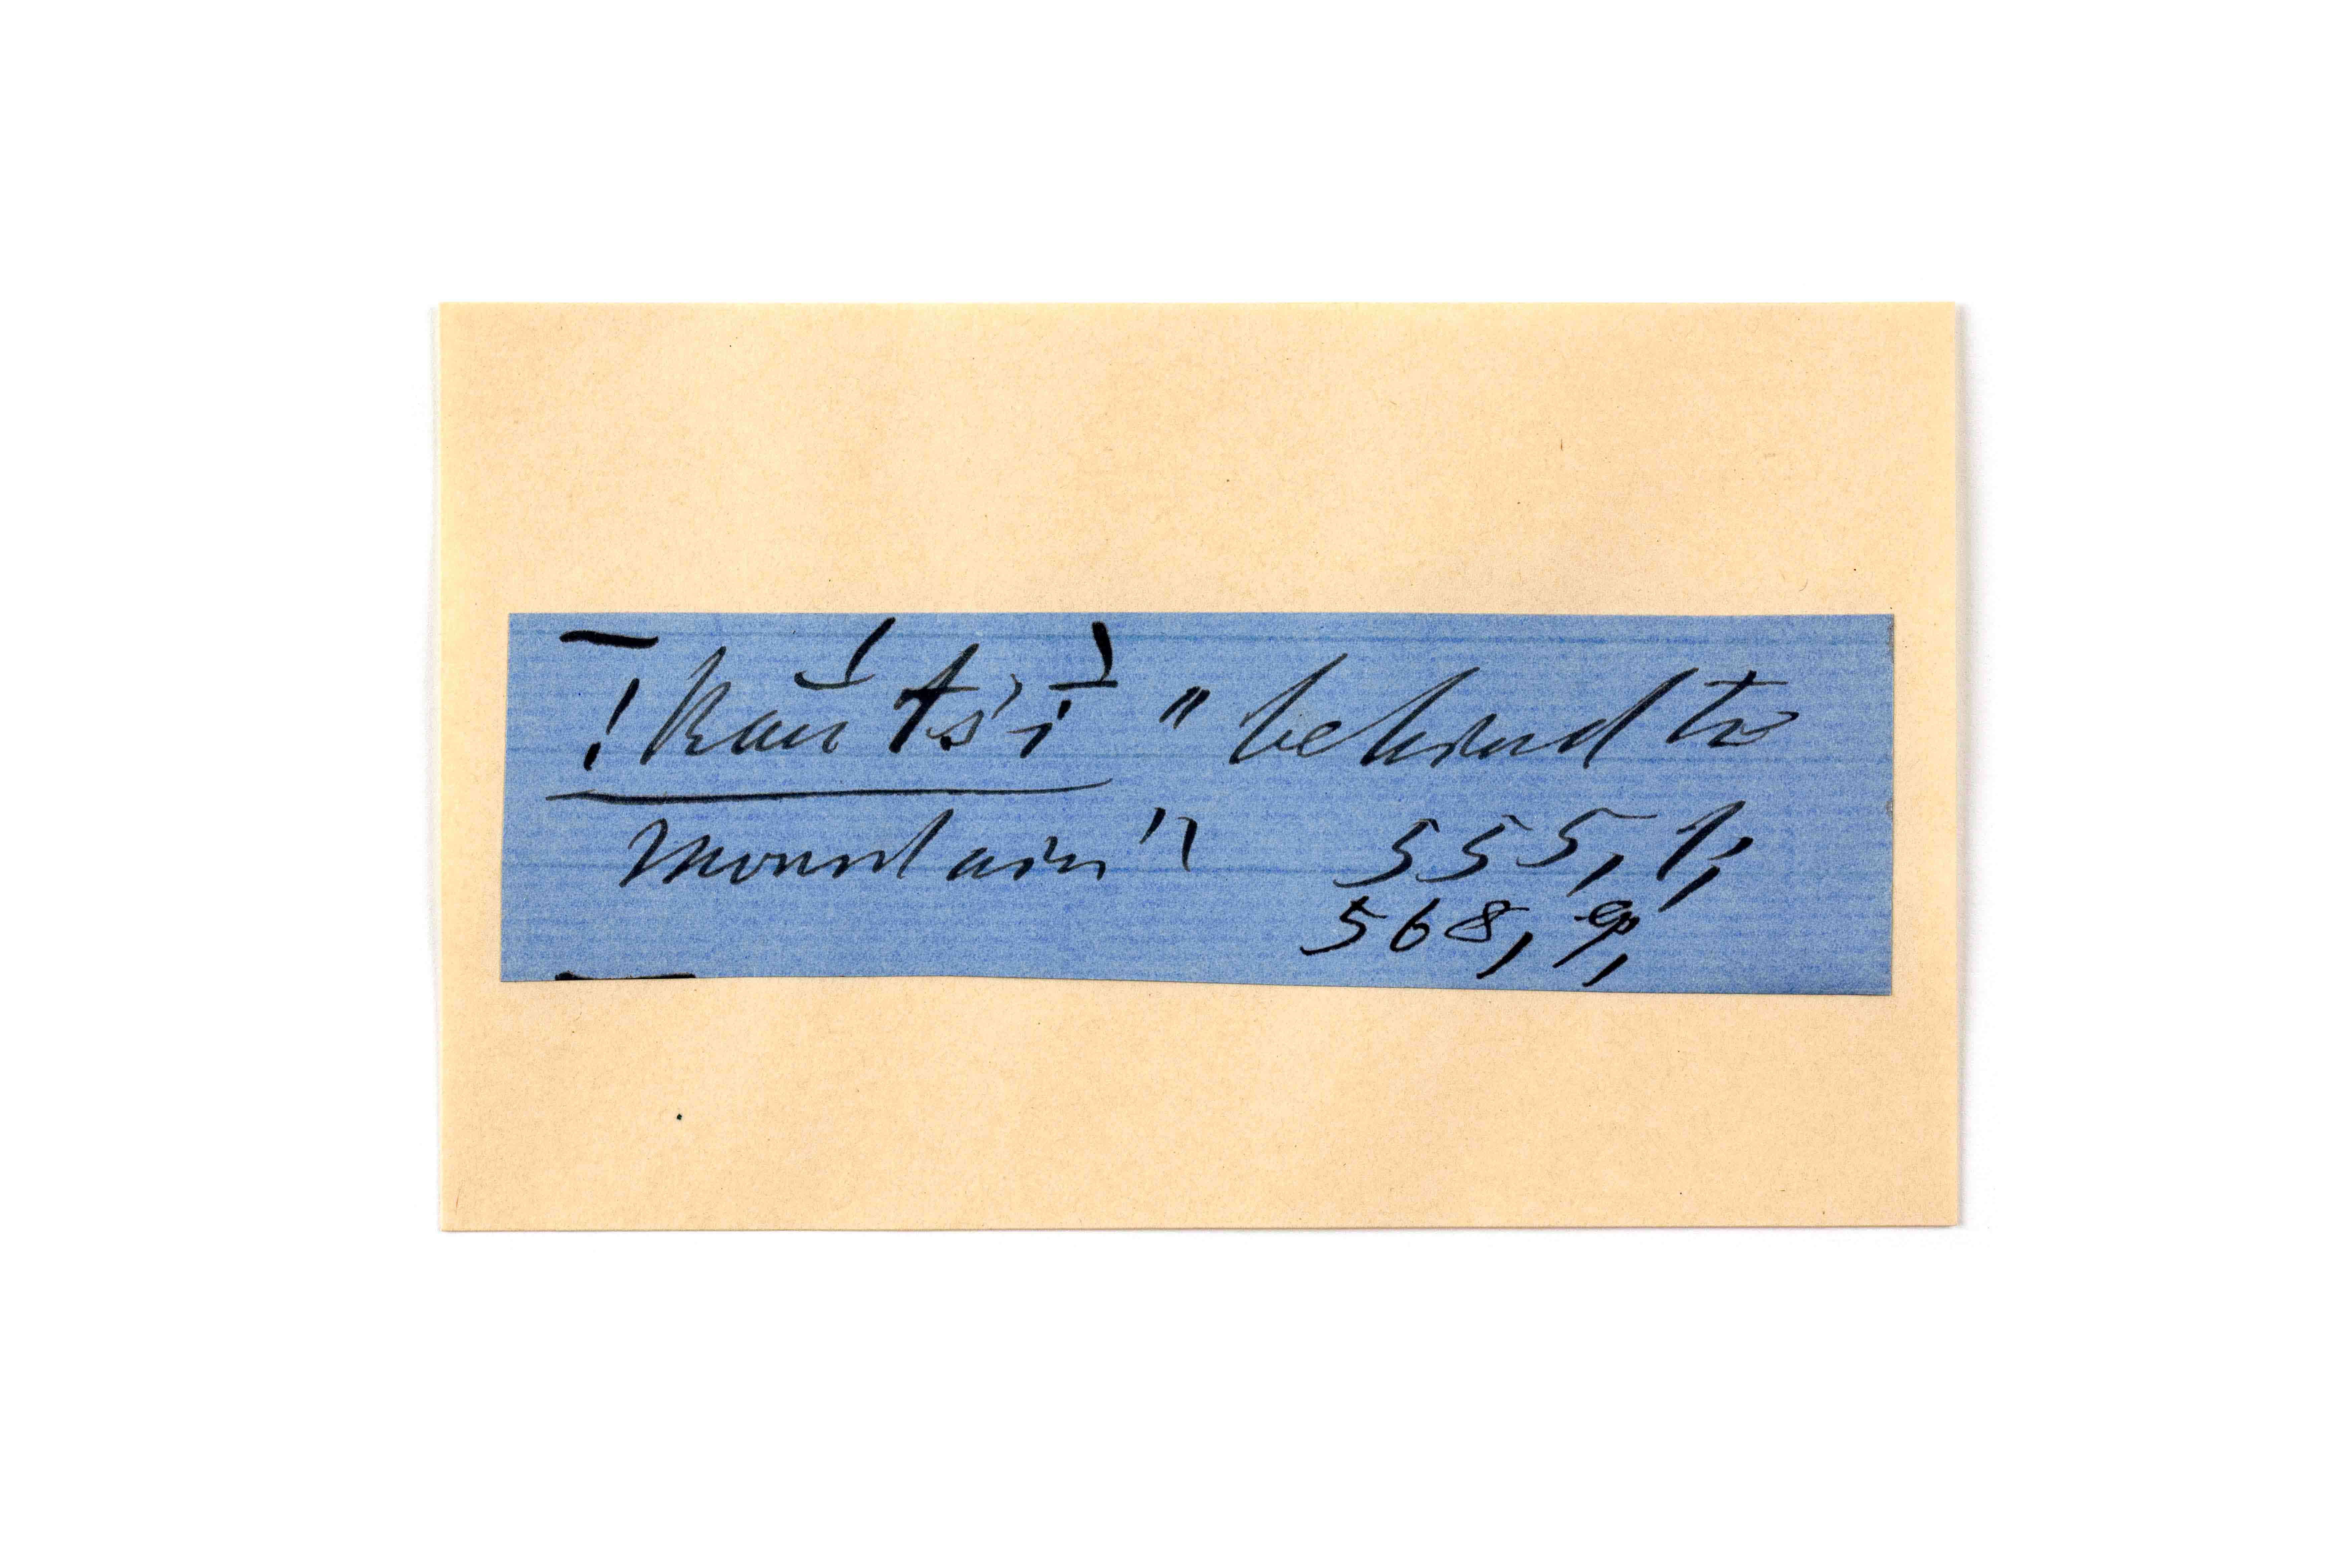 !kaŭ ts'ī " behind to
mountain" 555, 1;
568, 9,